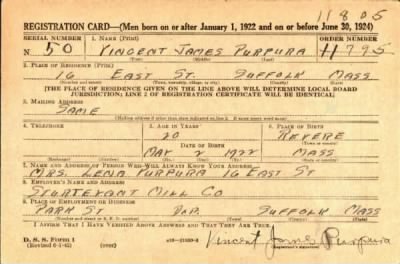 11805
REGISTRATION CARD—(Men born on or after January 1, 1922 and on or before June 30, 1924)
SERIAL NUMBER 1. NAME (Print) ORDER NUMBER
N 50 VINCENT JAMES PURPURA 11795
(First) (Middle) (Last)
2. PLACE OF RESIDENCE (Print)
16 EAST ST. SUFFOLK MASS
(Number and street) (Town, township, village, or city) (County) (State)
[THE PLACE OF RESIDENCE GIVEN ON THE LINE ABOVE WILL DETERMINE LOCAL BOARD
JURISDICTION; LINE 2 OF REGISTRATION CERTIFICATE WILL BE IDENTICAL]
3. MAILING ADDRESS
SAME
(Mailing address if other than place indicated on line 2. If same insert word same)
4. TELEPHONE 5. AGE IN YEARS 6. PLACE OF BIRTH
20 REVERE
DATE OF BIRTH (Town or county)
MAY 2 1922 MASS
(Mo.) (Day) (Yr.) (State or country)
7. NAME AND ADDRESS OF PERSON WHO WILL ALWAYS KNOW YOUR ADDRESS
MRS. LENA PURPURA 16 EAST ST
8. EMPLOYER'S NAME AND ADDRESS
STURTEVANT MILL CO
9. PLACE OF EMPLOYMENT OR BUSINESS
PARK ST DOR. SUFFOLK MASS
(Number and street or R. F. D. number) (Town) (County) (State)
I AFFIRM THAT I HAVE VERIFIED ABOVE ANSWERS AND THAT THEY ARE TRUE.
D. S. S. Form 1
Vincent James Purpura
(Registrant's signature)